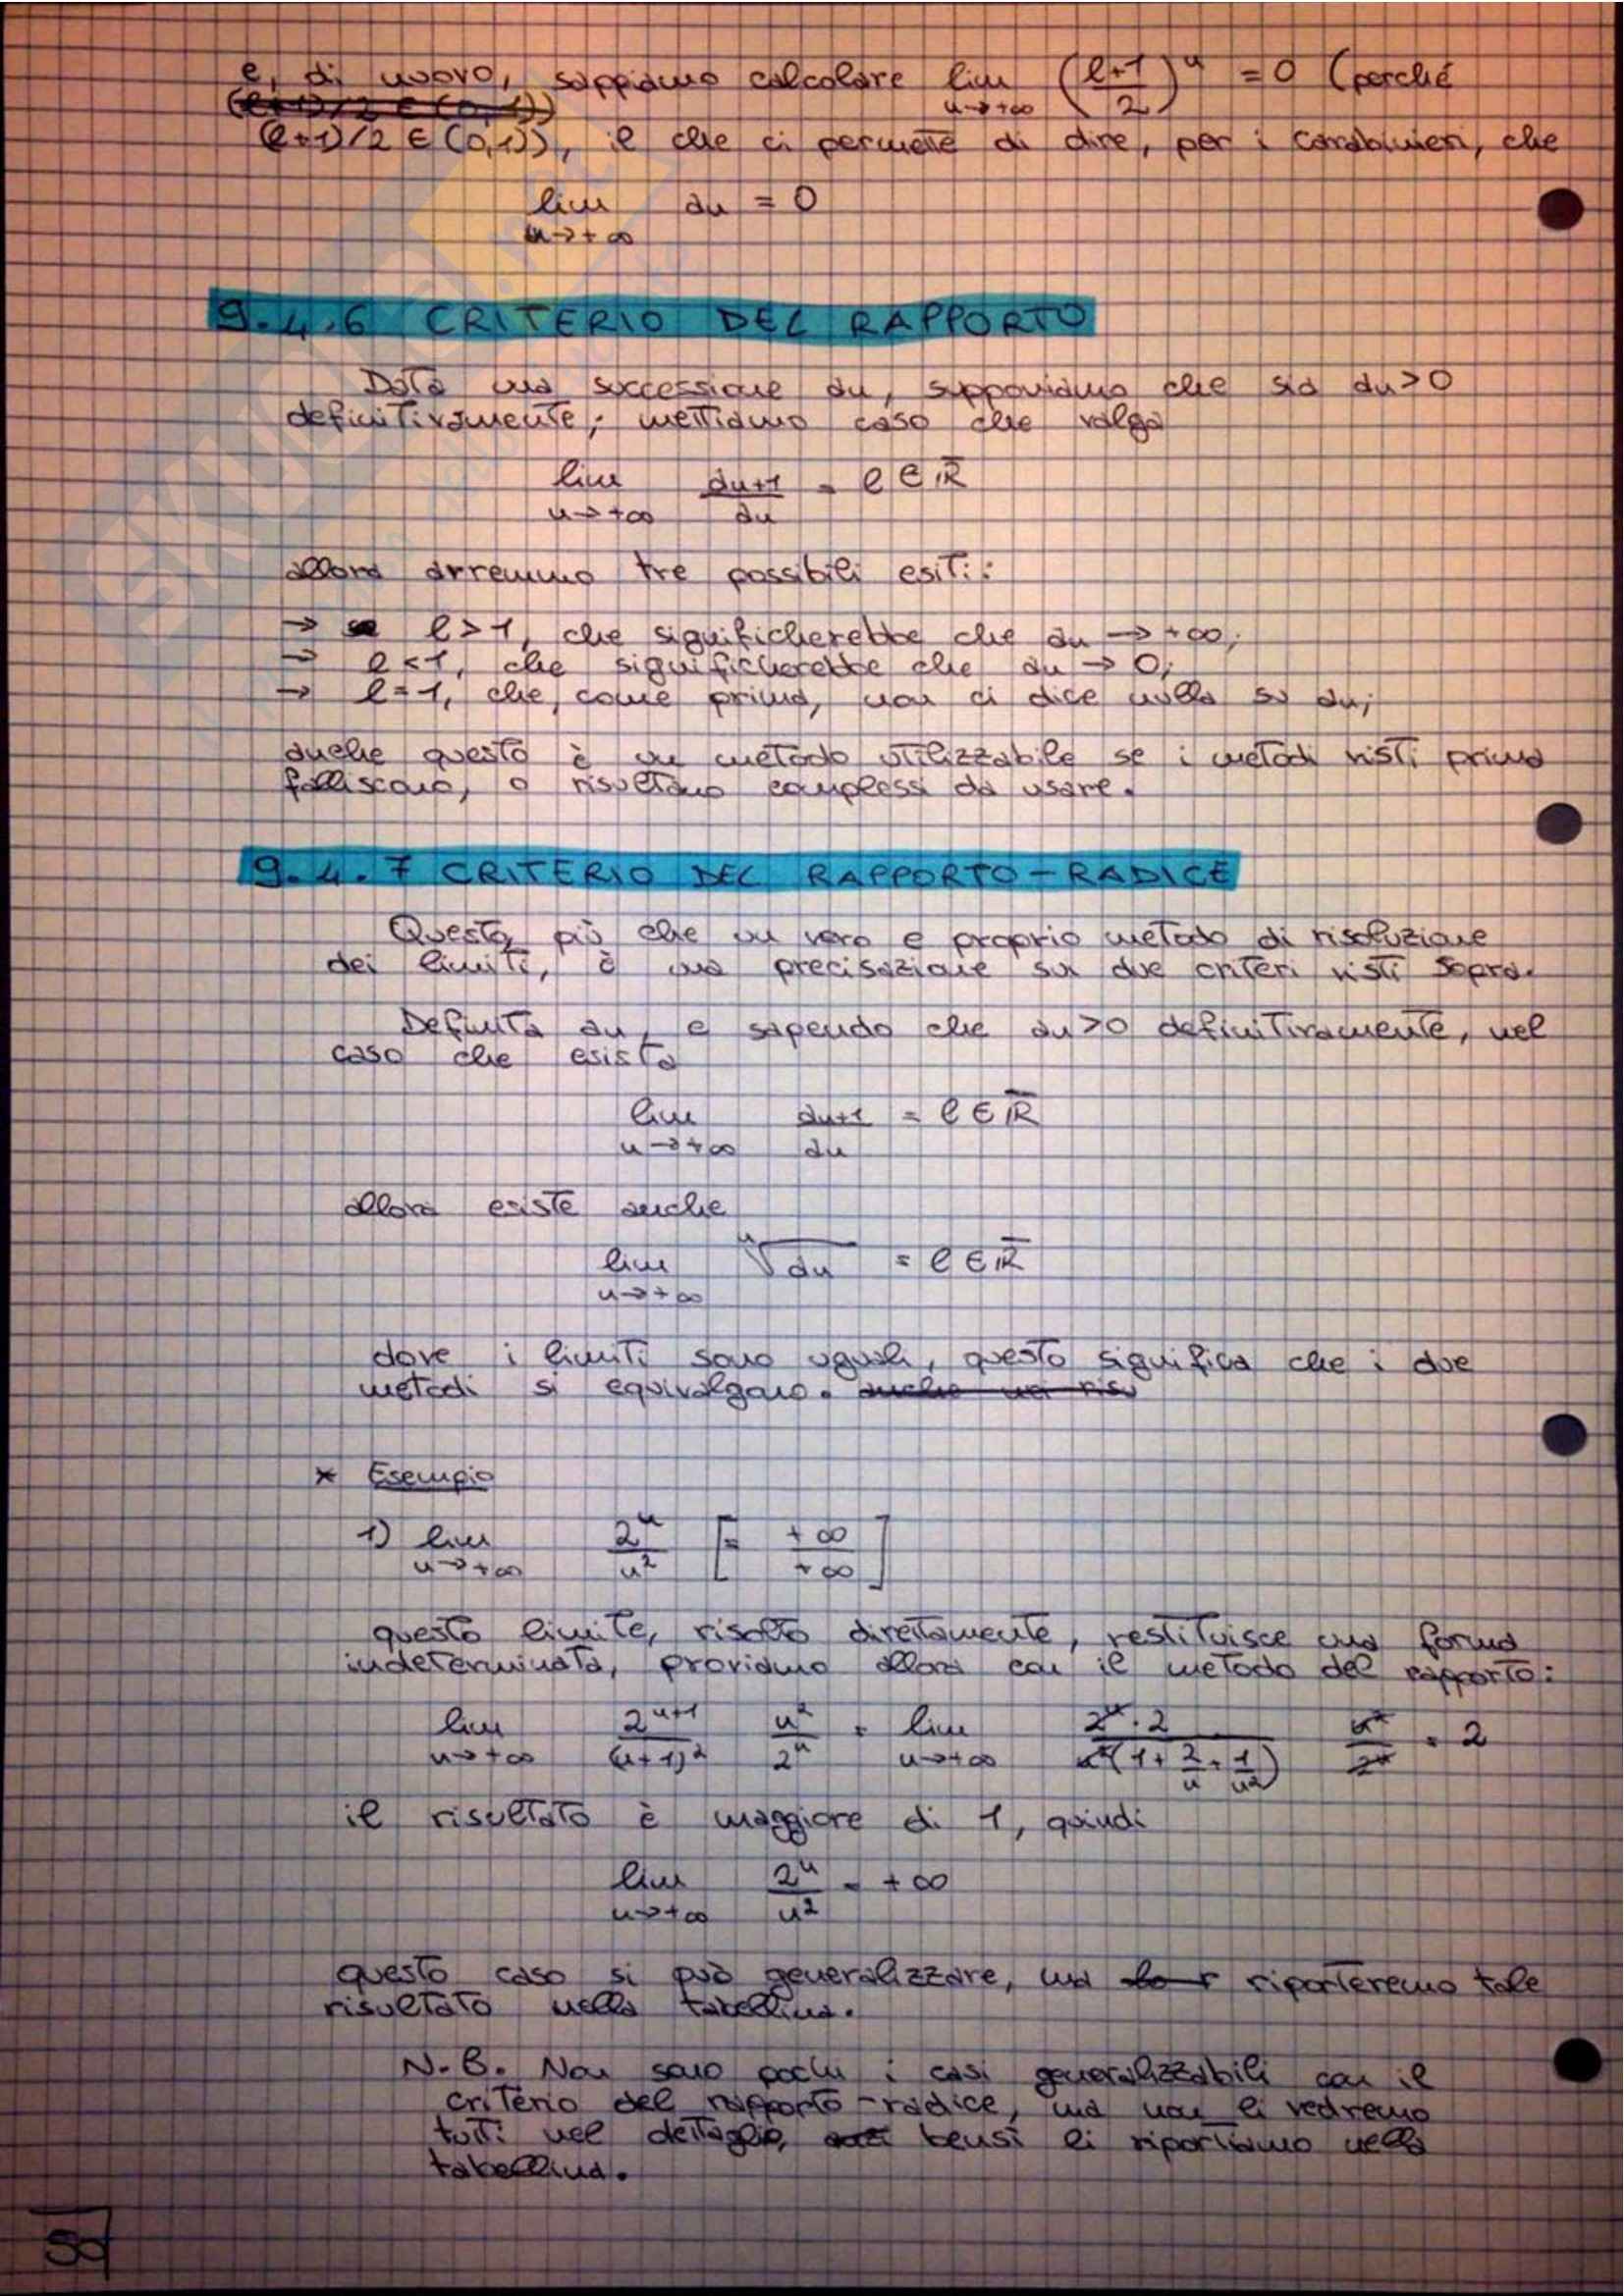 e, di nuovo, sappiamo calcolare lim n→+∞ ((l+1)/2)^n = 0 (perché
(l+1)/2 ∈ (0,1))
(l+1)/2 ∈ (0,1)), il che ci permette di dire, per i carabinieri, che
lim n→+∞ an = 0
9.4.6 CRITERIO DEL RAPPORTO
Data una successione an, supponiamo che sia an>0
definitivamente; mettiamo caso che valga
lim n→+∞ an+1/an = l ∈ R̄
allora avremmo tre possibili esiti:
→ l>1, che significherebbe che an → +∞;
→ l<1, che significherebbe che an → 0;
→ l=1, che, come prima, non ci dice nulla su an;
anche questo è un metodo utilizzabile se i metodi visti prima
falliscono, o risultano complessi da usare.
9.4.7 CRITERIO DEL RAPPORTO-RADICE
Questo, più che un vero e proprio metodo di risoluzione
dei limiti, è una precisazione sui due criteri visti sopra.
Definita an, e sapendo che an>0 definitivamente, nel
caso che esista
lim n→+∞ an+1/an = l ∈ R̄
allora esiste anche
lim n→+∞ ⁿ√an = l ∈ R̄
dove i limiti sono uguali, questo significa che i due
metodi si equivalgono.
* Esempio
1) lim n→+∞ 2^n/n² [= +∞/+∞]
questo limite, risolto direttamente, restituisce una forma
indeterminata, proviamo allora con il metodo del rapporto:
lim n→+∞ 2^(n+1)/(n+1)² n²/2^n = lim n→+∞ 2^n·2/n²(1+2/n+1/n²) n²/2^n = 2
il risultato è maggiore di 1, quindi
lim n→+∞ 2^n/n² = +∞
questo caso si può generalizzare, ma riporteremo tale
risultato nella tabellina.
N.B. Non sono pochi i casi generalizzabili con il
criterio del rapporto-radice, ma non li vedremo
tutti nel dettaglio, bensì li riportiamo nella
tabellina.